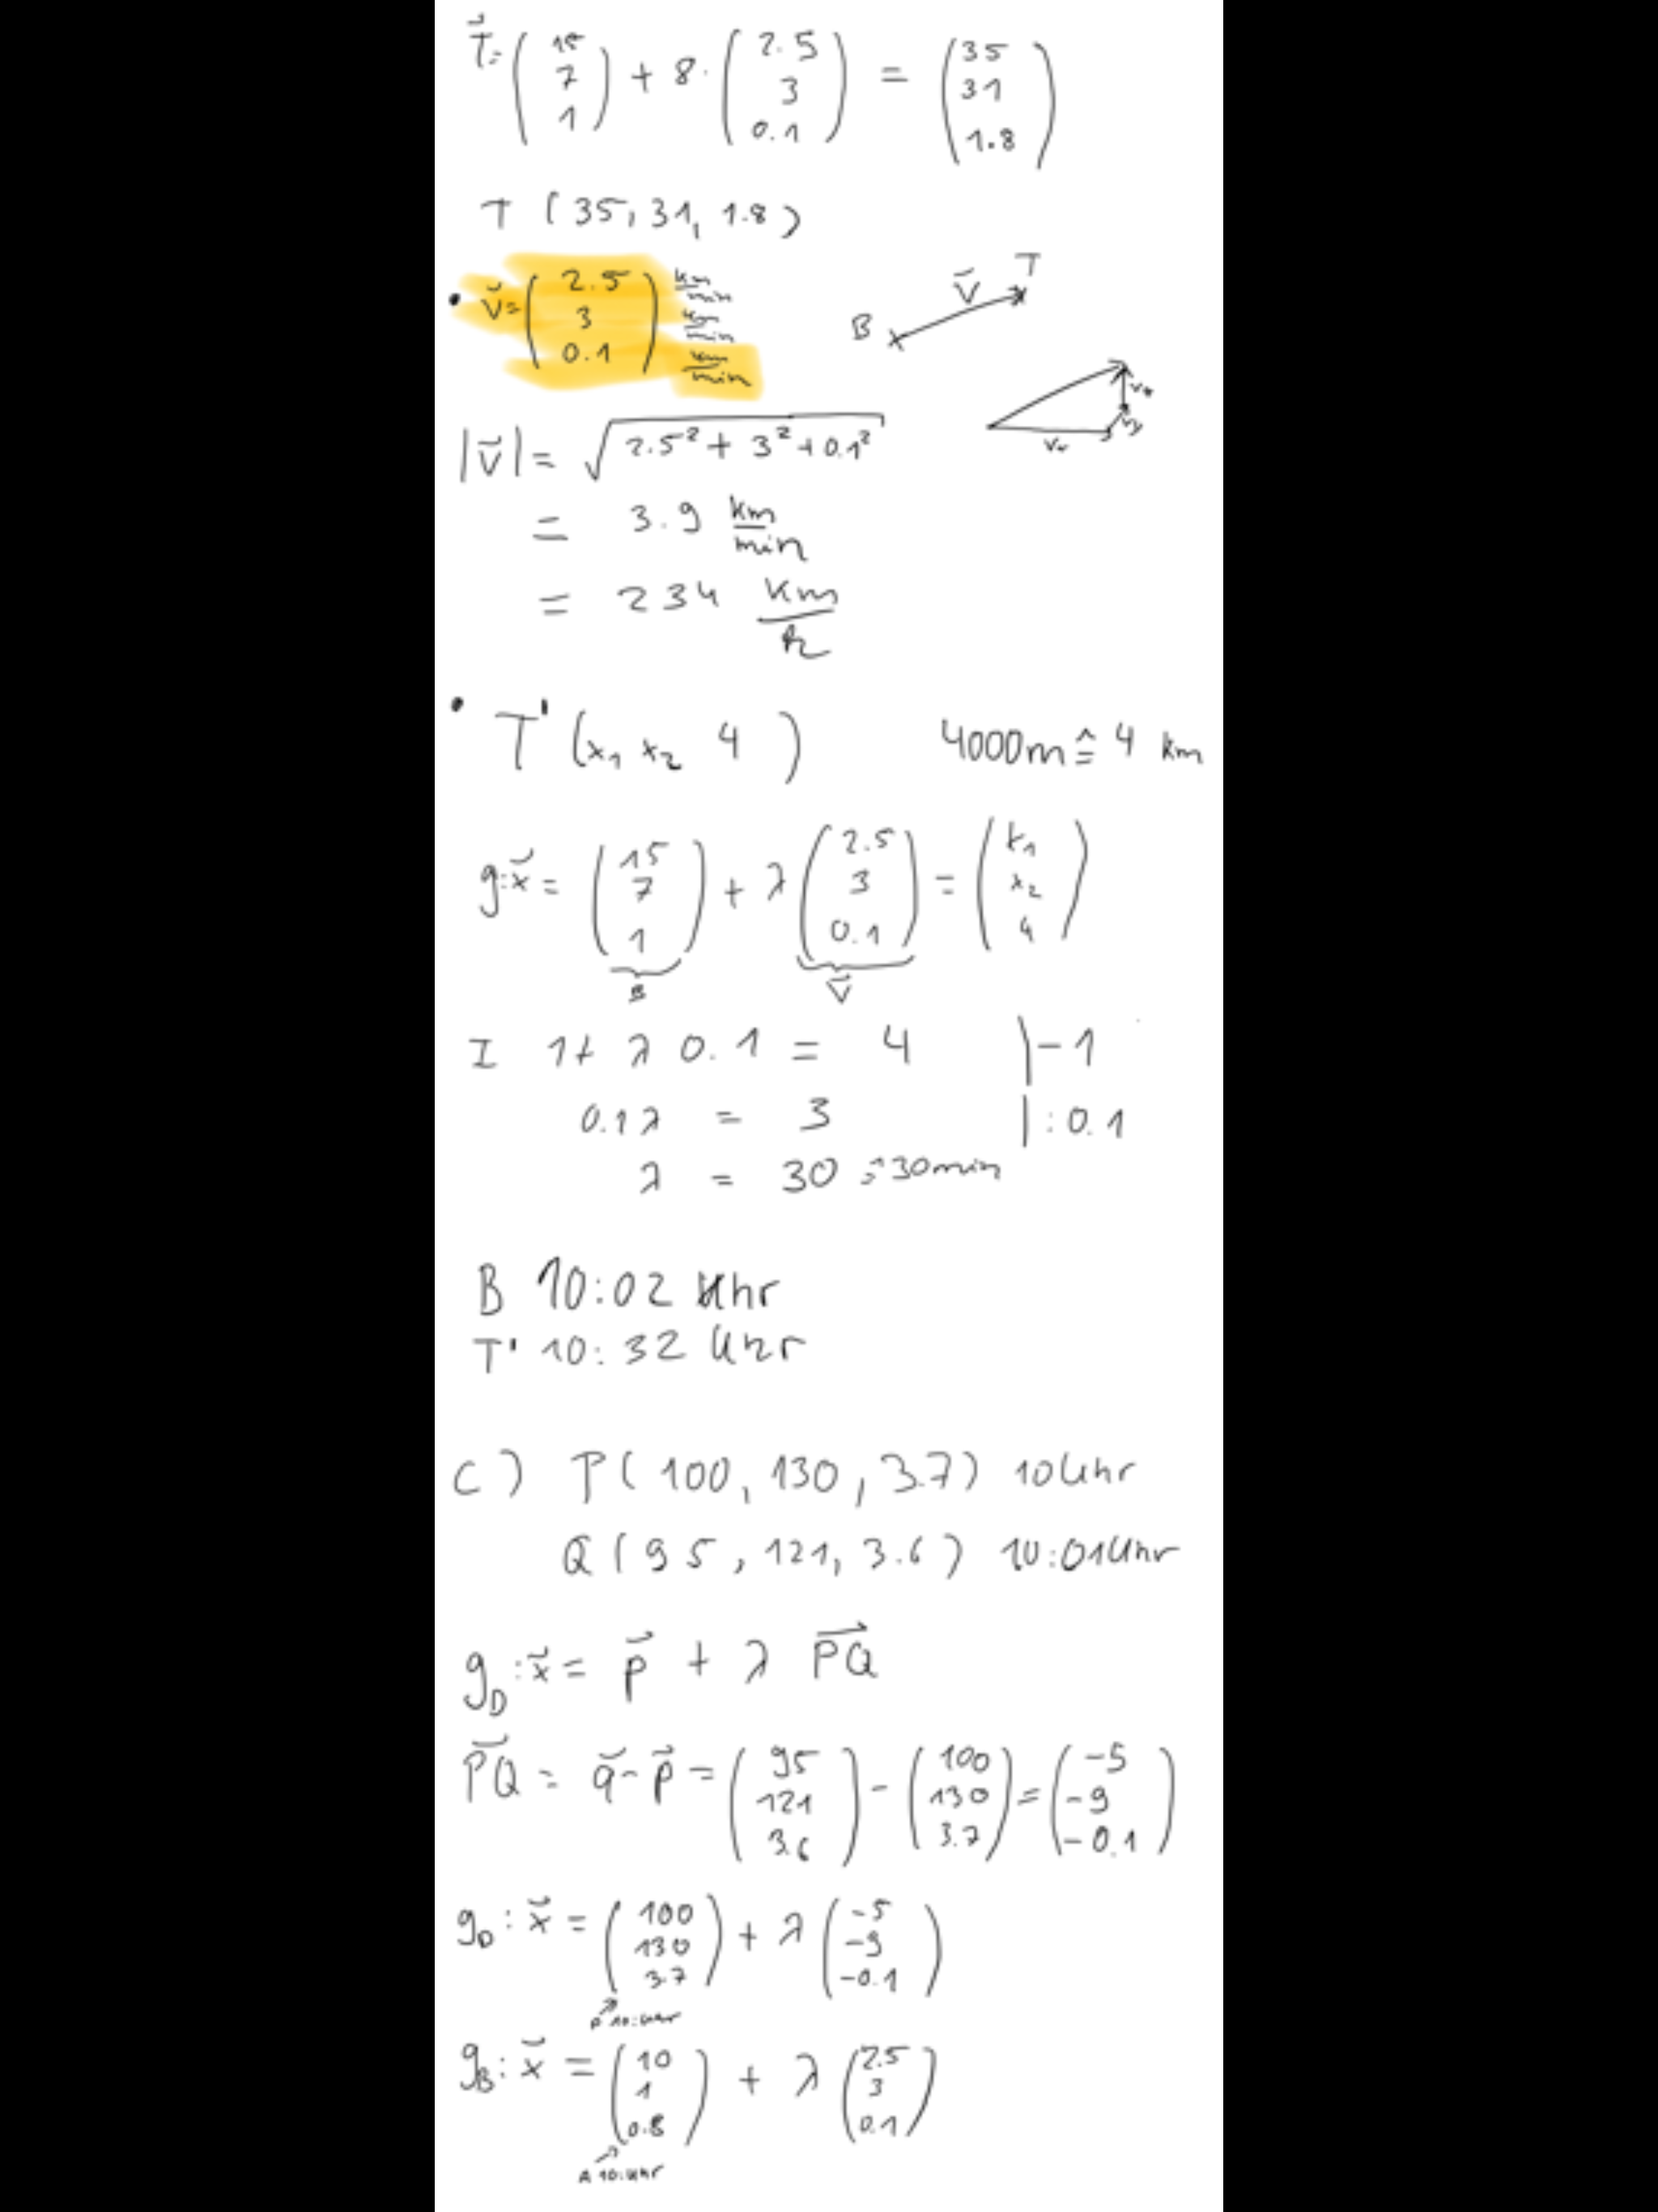 T⃗ = (15 7 1) + 8 · (2.5 3 0.1) = (35 31 1.8)
T (35, 31, 1.8)
• v⃗ = (2.5 3 0.1) km/min km/min km/min
B v⃗ T
|v⃗| = √(2.5² + 3² + 0.1²)
= 3.9 km/min
= 234 km/h
• T' (x₁ x₂ 4) 4000m ≙ 4 km
g: x⃗ = (15 7 1) + λ (2.5 3 0.1) = (x₁ x₂ 4)
B v⃗
I 1 + λ 0.1 = 4 |-1
0.1 λ = 3 |: 0.1
λ = 30 ≙ 30min
B 10:02 Uhr
T' 10:32 Uhr
C) P(100, 130, 3.7) 10 Uhr
Q (95, 121, 3.6) 10:01 Uhr
g_D: x⃗ = p⃗ + λ PQ⃗
PQ⃗ = q⃗ - p⃗ = (95 121 3.6) - (100 130 3.7) = (-5 -9 -0.1)
g_D: x⃗ = (100 130 3.7) + λ (-5 -9 -0.1)
P 10:Uhr
g_B: x⃗ = (10 1 0.8) + λ (2.5 3 0.1)
A 10:Uhr